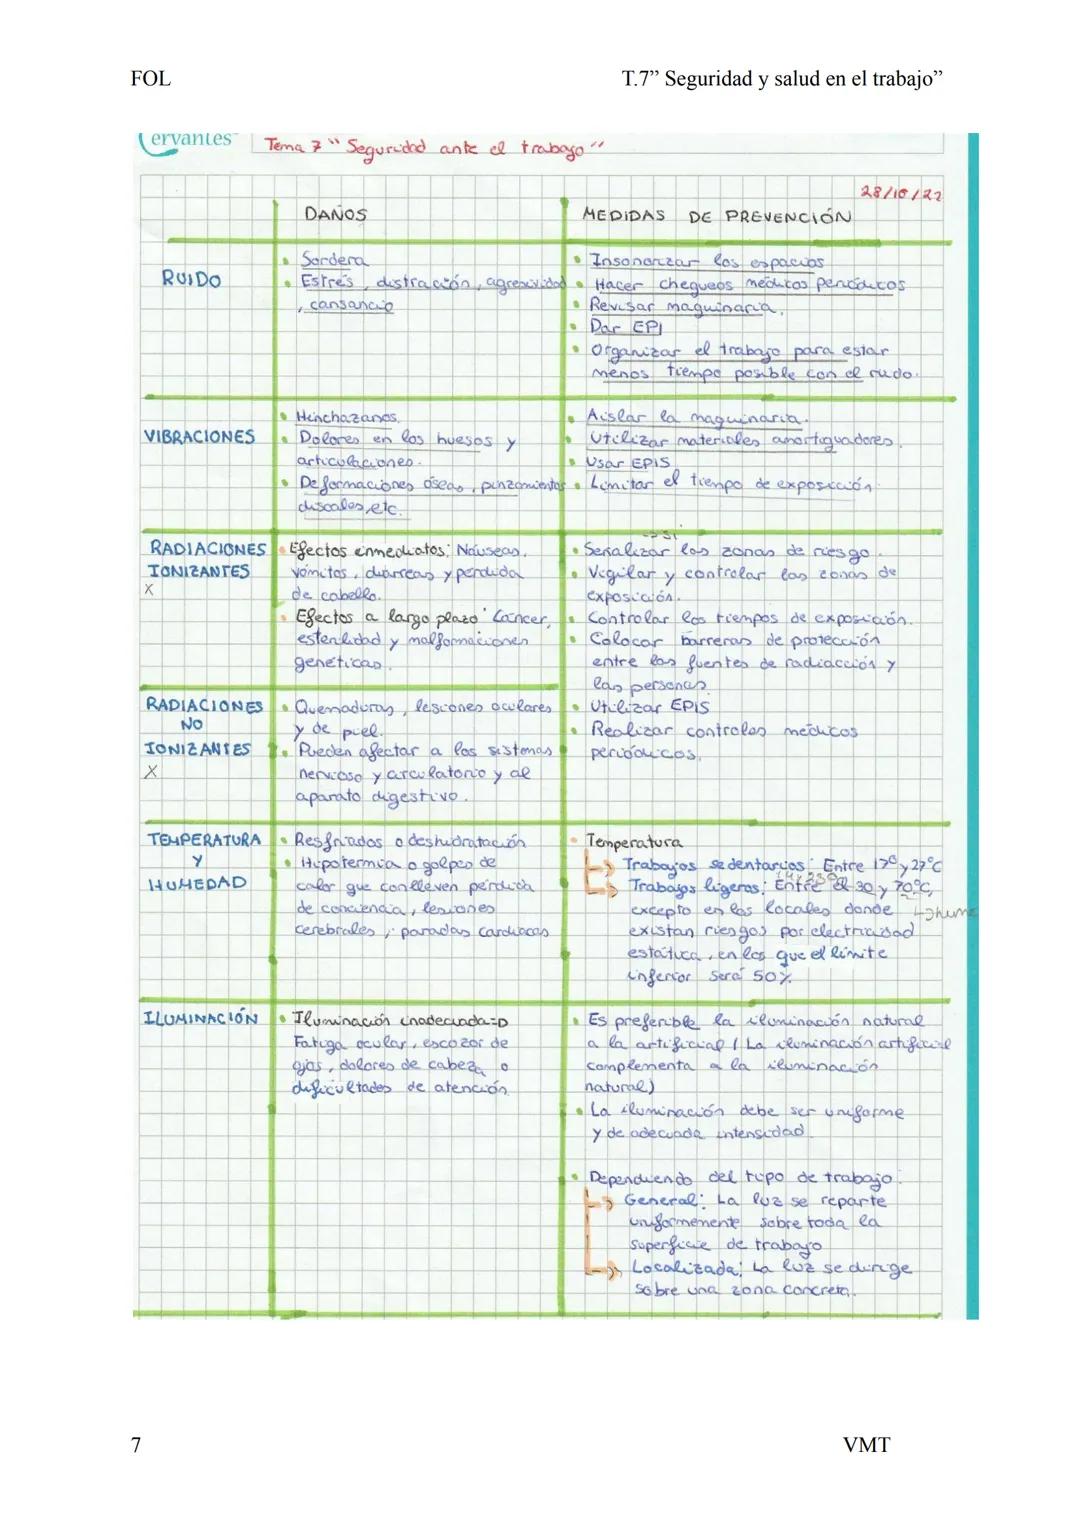 FOL
T.7” Seguridad y salud en el trabajo”
Cervantes
Tema 7 " Seguridad ante el trabajo "
28/10/22
DAÑOS
MEDIDAS DE PREVENCIÓN
RUIDO
• Sordera
• Estrés, distracción, agresividad
, cansancio
• Insonorizar los espacios
• Hacer chequeos médicos periódicos
• Revisar maquinaria.
• Dar EPI
• Organizar el trabajo para estar
menos tiempo posible con el ruido.
VIBRACIONES
• Hinchazones.
• Dolores en los huesos y
articulaciones.
• Deformaciones óseas, pinzamientos
discales, etc.
• Aislar la maquinaria.
• Utilizar materiales amortiguadores.
• Usar EPIS
• Limitar el tiempo de exposición.
RADIACIONES
IONIZANTES
X
• Efectos inmediatos: Náuseas,
vómitos, diarreas y pérdida
de cabello.
• Efectos a largo plazo: Cáncer,
esterilidad y malformaciones
genéticas.
RADIACIONES
NO
IONIZANTES
X
• Quemaduras, lesiones oculares
y de piel.
• Pueden afectar a los sistemas
nervioso y circulatorio y al
aparato digestivo.
→ Si
• Señalizar las zonas de riesgo.
• Vigilar y controlar las zonas de
exposición.
• Controlar los tiempos de exposición.
• Colocar barreras de protección
entre las fuentes de radiacción y
las personas.
• Utilizar EPIS
• Realizar controles médicos
periódicos.
TEMPERATURA
Y
HUMEDAD
• Resfriados o deshidratación
• Hipotermia o golpes de
calor que conlleven pérdida
de conciencia, lesiones
cerebrales, paradas cardiacas
• Temperatura
→ Trabajos sedentarios: Entre 17º y 27ºC
14 y 25º
→ Trabajos ligeros: Entre el 30 y 70ºC,
excepto en los locales donde
existan riesgos por electricidad
estática, en los que el límite
inferior será 50%
ILUMINACIÓN
• Iluminación inadecuada =D
Fatiga ocular, escozor de
ojos, dolores de cabeza o
dificultades de atención.
• Es preferible la iluminación natural
a la artificial (La iluminación artificial
complementa a la iluminación
natural)
• La iluminación debe ser uniforme
y de adecuada intensidad.
• Dependiendo del tipo de trabajo:
→ General: La luz se reparte
uniformemente sobre toda la
superficie de trabajo
→ Localizada: La luz se dirige
sobre una zona concreta.
7
VMT